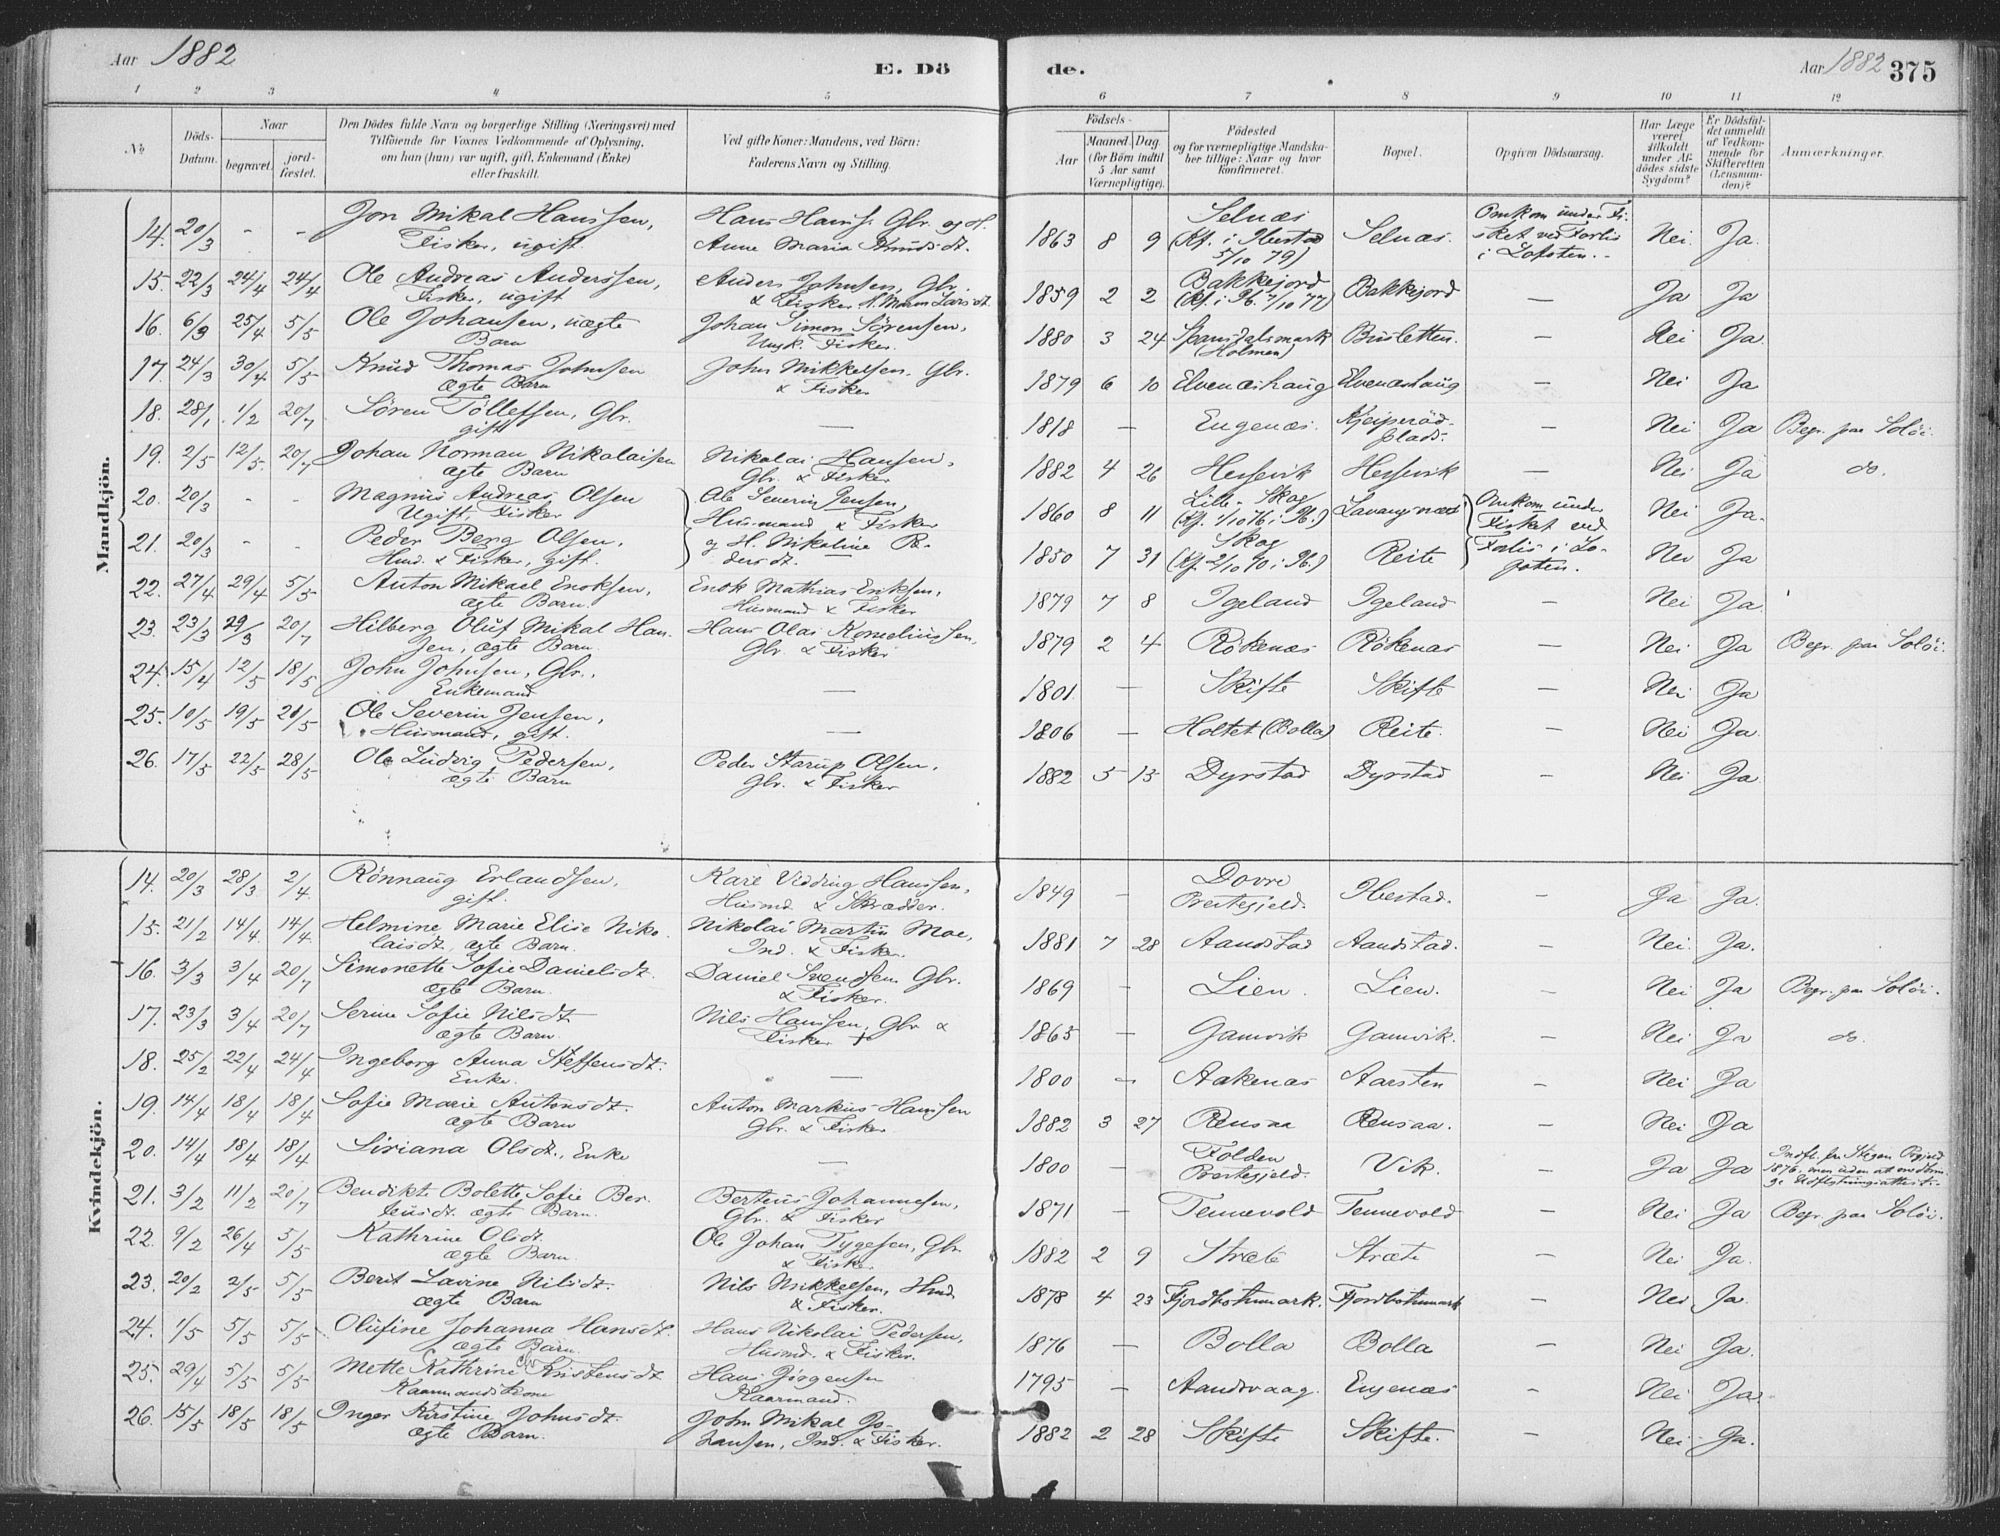 Aar 1882
E. Dö
de.
Aar 1882 375
1 2 3 4 5 6 7 8 9 10 11 12
No
Döds-
Datum.
Naar
begravet.
jord-
fæstet.
Den Dödes fulde Navn og borgerlige Stilling (Næringsvei) med
Tilföiende for Voxnes Vedkommende af Oplysning,
om han (hun) var ugift, gift, Enkemand (Enke)
eller fraskilt.
Ved gifte Koner: Mandens, ved Börn:
Faderens Navn og Stilling.
Födsels-
Aar
Maaned. Dag.
(for Börn indtil
5 Aar samt
Værnepligtige).
Födested
og for værnepligtige Mandska-
ber tillige: Naar og hvor
konfirmeret.
Bopæl.
Opgiven Dödsaarsag.
Har Læge
været
tilkaldt
under Af-
dödes sidste
Sygdom?
Er Dödsfal-
det anmeldt
af Vedkom-
mende for
Skifteretten
(Lensman-
den)?
Anmærkninger.
Mandkjön.
14. 20/3 - - Jon Mikal Hanssen, Hans Hanss. Gbr. og H. 1863 8 9 Selnæs Selnæs. Omkom under Fi- Nei. Ja.
Fisker, ugift. Anne Maria Knudsdt. (Kf. i Ibestad sket ved Forlis
5/10 79) i Lofoten.
15. 22/3 24/4 24/4 Ole Andreas Anderssen, Anders Johnsen, Gbr. 1859 2 2 Bakkejord Bakkejord — Ja Ja
Fisker, ugift & Fisker H. Maren Larsdt. (Kf. i Ib. 7/10 77)
16. 6/3 25/4 5/5 Ole Johansen, uægte Johan Simon Sörensen, 1880 3 24 Spansdalsmark — Nei Ja.
Barn Ungk. Fisker. (Holmen)
17. 24/3 30/4 5/5 Knud Thomas Johnsen John Mikkelsen. Gbr. 1879 6 10 Elvenæshaug Elvenæshaug — Nei Ja
ægte Barn & Fisker
18. 28/1 1/2 20/7 Sören Töllefsen, Gbr. — 1818 — Engenæs. Kjeiperöd- — Nei Ja Begr. paa Solöi.
gift plads.
19. 2/5 12/5 20/7 Johan Norman Nikolaisen Nikolai Hansen, 1882 4 26 Hessevik Hessevik — Nei Ja do.
ægte Barn Gbr. & Fisker
20. 20/3 - - Magnus Andreas Olsen Ole Severin Jensen, 1860 8 11 Lille-Skog Lavangsnæs Omkom under Nei Ja.
Ugift, Fisker Husmand & Fisker (Kf. 1/10 76 i Ib.) Fisket ved
21. 20/3 - - Peder Berg Olsen, og H. Nikoline Pe- 1850 7 31 Skog Reite Forlis i Lo- Nei Ja
Hmd. & Fisker, gift. dersdt. (Kf. 2/10 70 i Ib.) foten.
22. 27/4 29/4 5/5 Anton Mikael Enoksen, Enok Mathias Eriksen, 1879 7 8 Igeland Igeland — Nei Ja.
ægte Barn. Husmand & Fisker
23. 23/3 29/3 20/7 Hilberg Oluf Mikal Han- Hans Olai Korneliussen, 1879 2 4 Rökenæs Rökenæs — Nei Ja Begr. paa Solöi.
sen, ægte Barn. Gbr. & Fisker
24. 15/4 12/5 18/5 John Johnsen, Gbr., — 1801. — Skifte Skifte — Nei. Ja
Enkemand
25. 10/5 19/5 20/5 Ole Severin Jensen, — 1806 — Holtet (Bolla) Reite. — Nei Ja.
Husmand, gift.
26. 17/5 22/5 28/5 Ole Ludvig Pedersen, Peder Starup Olsen, 1882 5 15 Dyrstad Dyrstad — Nei Ja.
ægte Barn Gbr. & Fisker
Kvindekjön.
14. 20/3 28/3 2/4 Rönnaug Erlandsen, Kare Vidding Hanssen, 1849 — Dovre Ibestad. — Ja Ja.
gift. Husmd. & Skrædder. Prestegjeld.
15. 21/2 14/4 14/4 Helmine Marie Elise Niko- Nikolai Martin Moe, 1881 7 28 Aandstad Aandstad. — Nei. Ja.
laisdt, ægte Barn. Ind. & Fisker.
16. 3/3 3/4 20/7 Simonette Sofie Danielsdt. Daniel Svendsen Gbr. 1869 — Lien. Lien. — Nei Ja Begr. paa Solöi.
ægte Barn. & Fisker.
17. 23/3 3/4 20/7 Serine Sofie Nilsdt Nils Hanssen, Gbr & 1865 — Gamvik Gamvik. — Nei Ja do.
ægte Barn Fisker
18. 25/2 22/4 24/4 Ingeborg Anna Steffensdt. — 1800 — Aakenæs Aarsten — Nei Ja
Enke.
19. 14/4 18/4 18/4 Sofie Marie Antonsdt. Anton Markus Hanssen 1882 3 27 Rensaa Rensaa. — Nei Ja
ægte Barn Gbr. & Fisker
20. 14/4 18/4 18/4 Siriana Olsdt., Enke — 1800 — Folden Vik. — Ja Ja Indfl. fra Stegen Prgjeld
Prestegjeld. 1876, men uden at medbrin-
ge Udflytningsattest.
21. 3/2 11/2 20/7 Bendikte Bolette Sofie Ber- Berteus Johannesen, 1871 — Tennevold Tennevold — Nei Ja Begr. paa Solöi.
teusdt. ægte Barn. Gbr. & Fisker
22. 9/2 26/4 5/5 Kathrine Olsdt. Ole Johan Tygesen, Gbr. 1882 2 9 Stræte Stræte — Nei Ja.
ægte Barn. & Fisker.
23. 20/2 2/5 5/5 Berit Lavine Nilsdt. Nils Mikkelsen, Hmd. 1878 4 23 Fjordbotnmark. Fjordbotnmark — Nei Ja.
ægte Barn & Fisker.
24. 1/5 5/5 5/5 Olufine Johanna Hansdt. Hans Nikolai Pedersen, 1876 — Bolla Bolla — Nei Ja.
ægte Barn. Husmd. & Fisker.
25. 29/4 5/5 5/5 Mette Kathrine Kristensdt Hans Jörgensen 1795 — Aandsvaag. Engenæs — Nei Ja.
Kaarmandskone Kaarmand.
26. 15/5 18/5 18/5 Inger Kirstine Johnsdt. John Mikal Jo- 1882 2 28 Skifte Skifte. — Nei Ja.
ægte Barn. hansen, Ind. & Fisker.